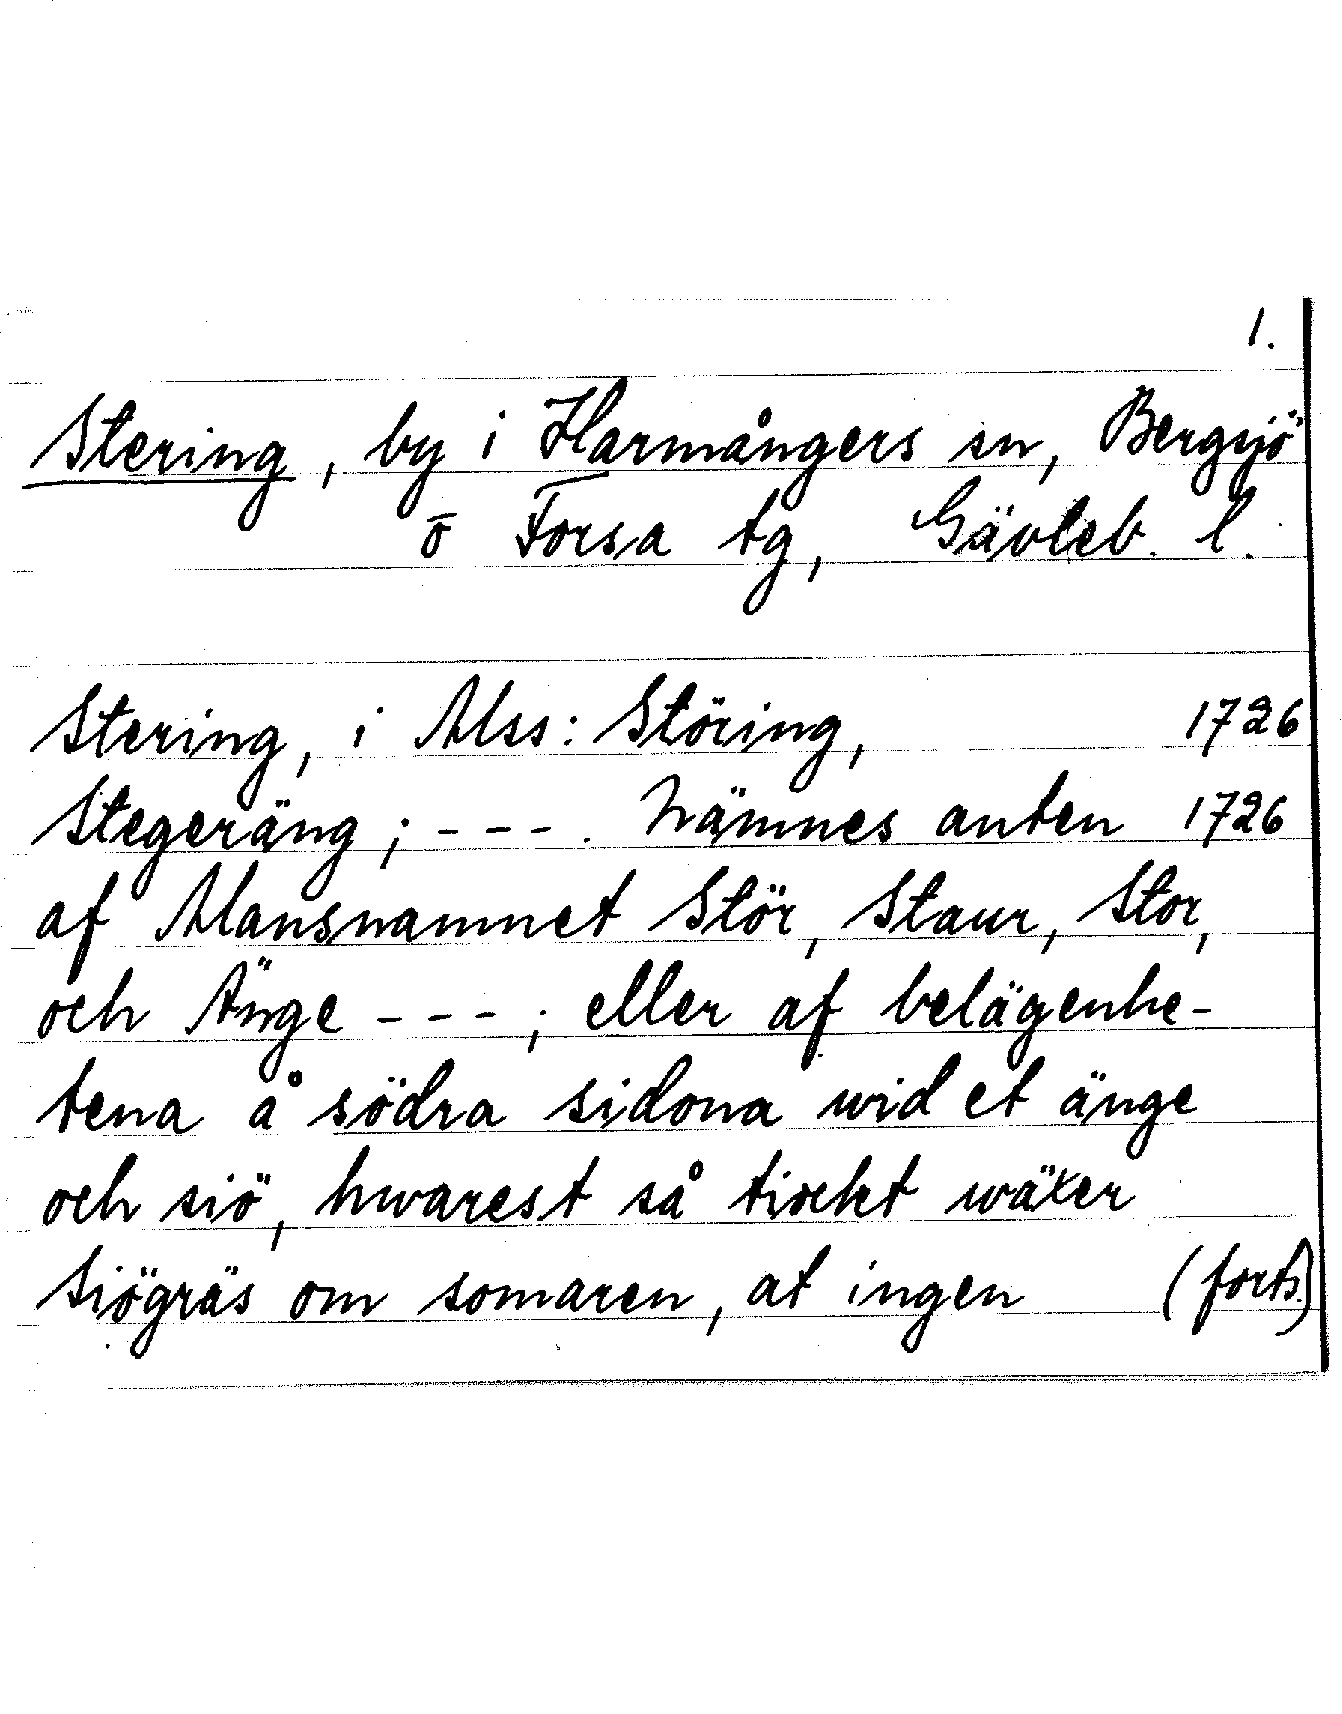 1.
Stering, by i Harmångers sn, Bergsjö
o Forsa tg, Gävleb. l.
Stering, i Mss: Störing, 1726
Stegeräng; - - - . Nämnes anten 1726
af Mansnamnet Stör, Staur, Stor,
och Änge - - - ; eller af belägenhe-
tena å södra sidona wid et änge
och siö, hwarest så tiockt wäxer
Siögräs om somaren, at ingen (forts.)